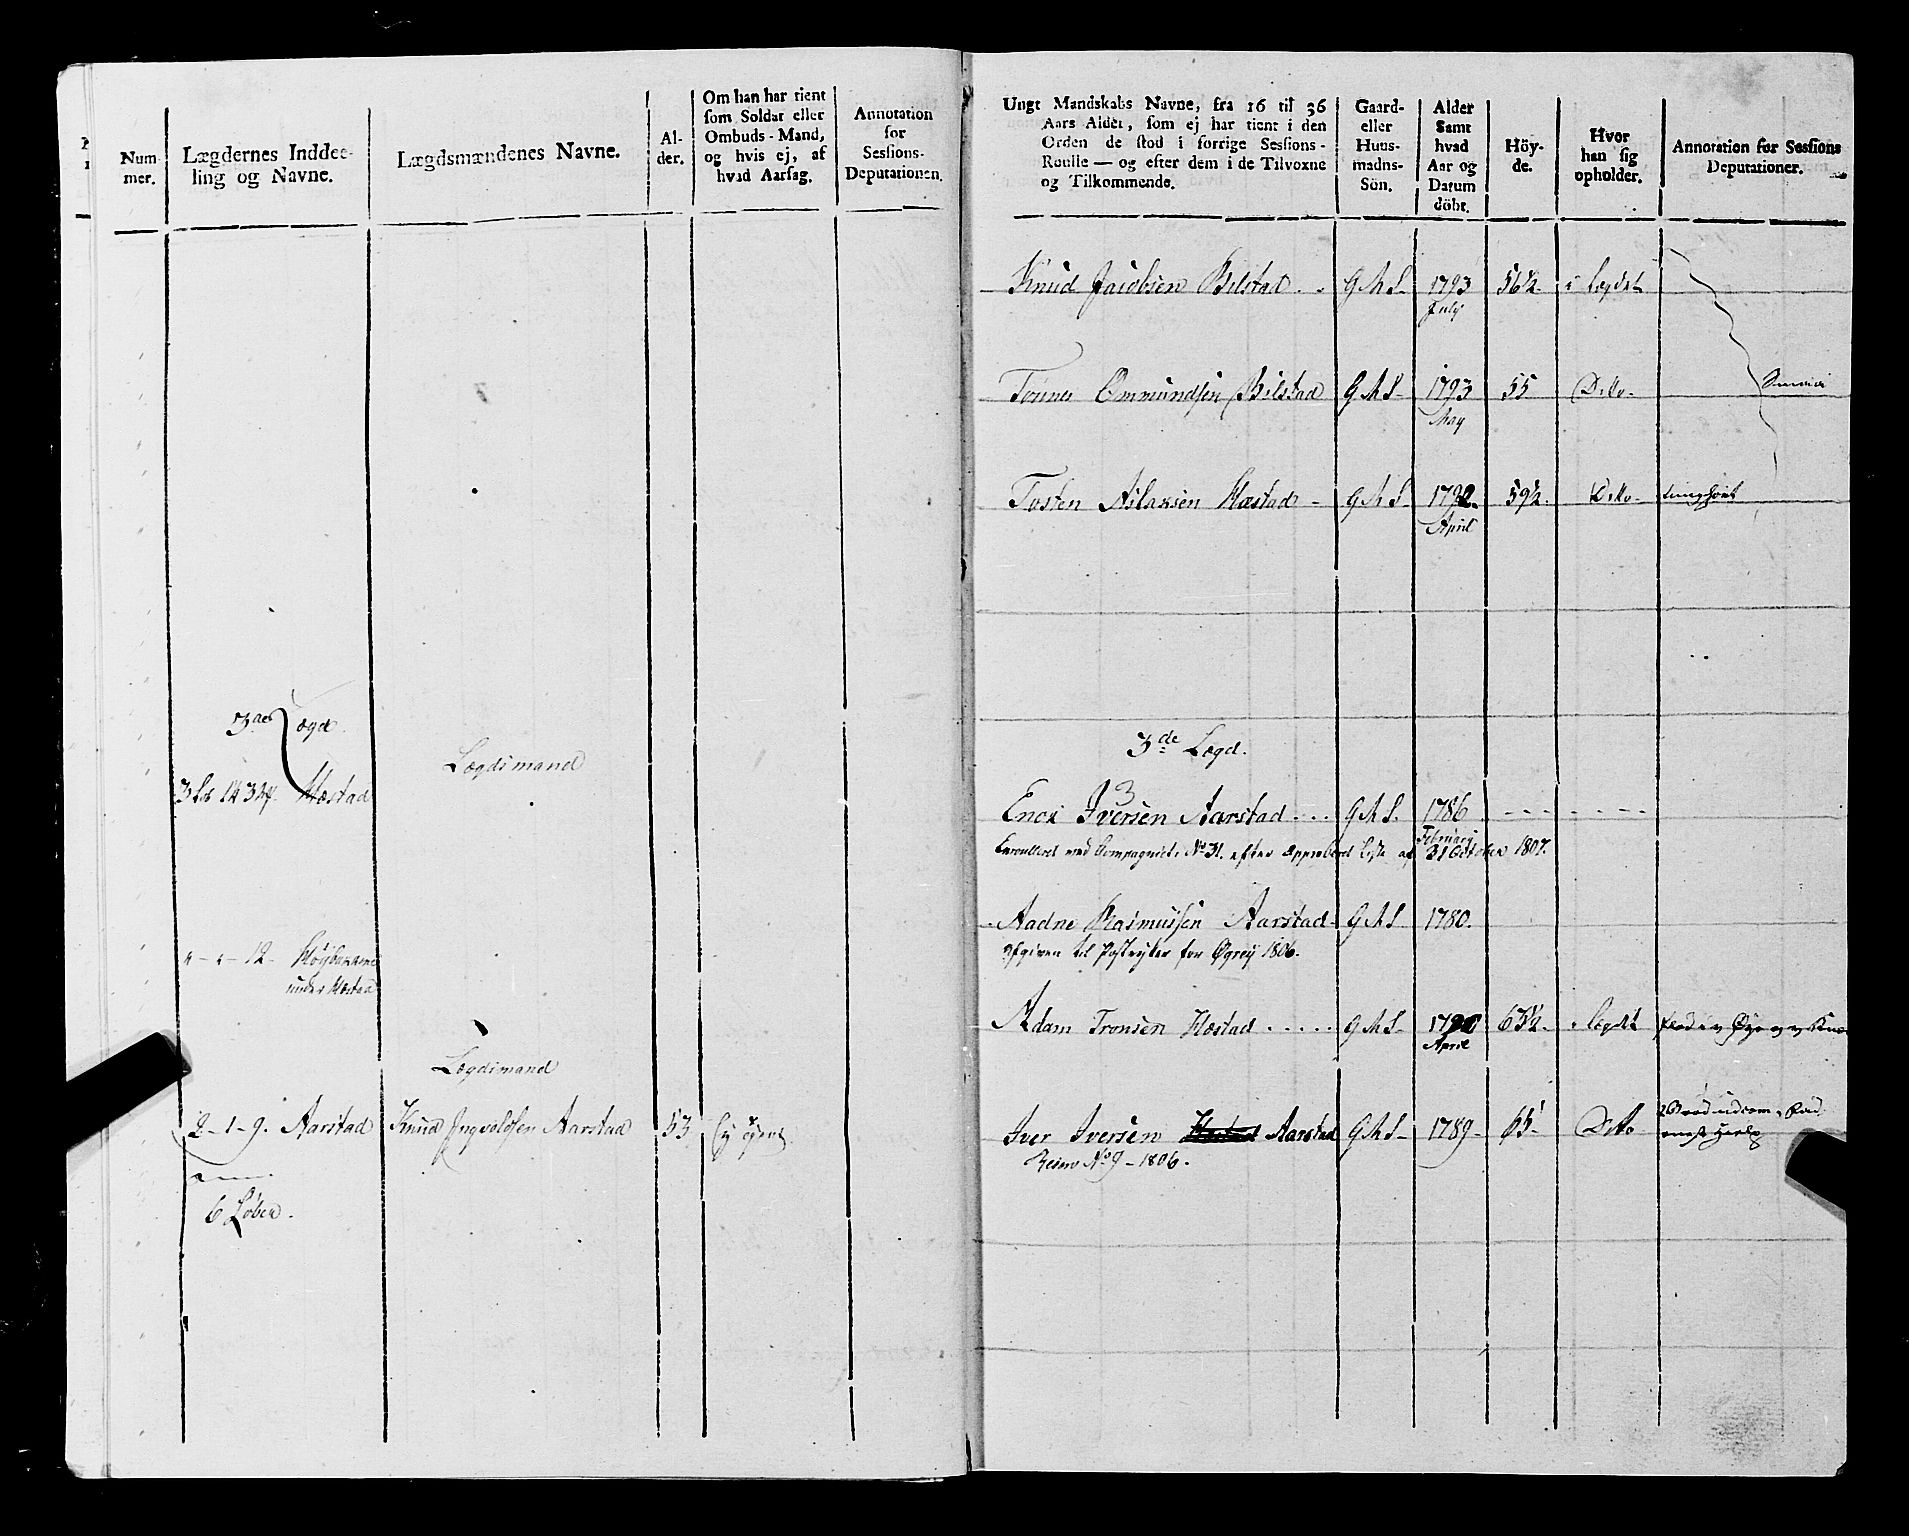 Num-
mer.
Lægdernes Inddee-
ling og Navne.
Lægdsmændenes Navne.
Al-
der.
Om han har tient
som Soldat eller
Ombuds-Mand,
og hvis ej, af
hvad Aarsag.
Annotation
for
Sessions-
Deputationen.
3de Lægd.
Lægdsmand
Hæstad
12. Höybakkene
under Hæstad
Lægdsmand
2-1-9. Aarstad Knud Ingvaldsen Aarstad 53 Ey tient
6 Løber.
Ungt Mandskabs Navne, fra 16 til 36
Aars Alder, som ej har tient i den
Orden de stod i forrige Sessions-
Roulle — og efter dem i de Tilvoxne
og Tilkommende.
Gaard-
eller
Huus-
mands-
Sön.
Alder
Samt
hvad
Aar og
Datum
döbt.
Höy-
de.
Hvor
han sig
opholder.
Annotation for Sessions
Deputationer.
Knud Jacobsen Bilstad G M S 1793 56½ i Lægdet
July
Tönnes Ommundsen Bilstad G M S 1793 55 Ditto
May
Tosten Aslaksen Hæstad G M S 1792 59½ Ditto
April
3de Lægd.
3
Enok Iversen Aarstad G M S. 1786
February
Enroulleret ved Compagniet No 31. efter approberet Liste af 31 October 1807.
Aadne Rasmussen Aarstad G M S 1780.
afgiven til Postrytter for Øgrey 1806.
Adam Tronsen Hæstad G M S 1790 63½ i Lægdet
April
Iver Iversen Hæstad Aarstad G M S 1789 65 Ditto
Reserv No 9 - 1806.